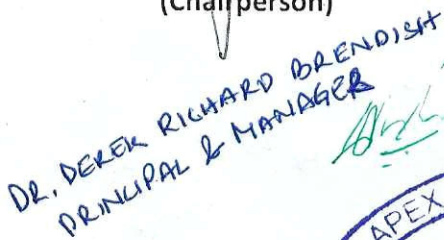 (Chairperson)
DR. DEREK RICHARD BRENDISH
PRINCIPAL & MANAGER
APEX